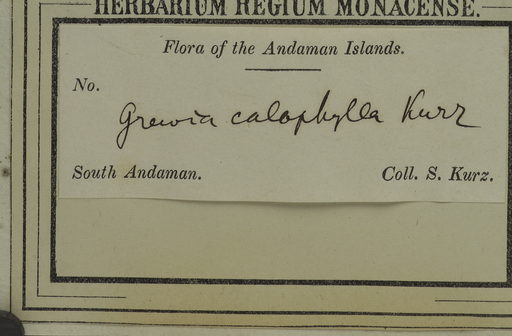 HERBARIUM REGIUM MONACENSE.
Flora of the Andaman Islands.
No.
Grewia calophylla Kurz
South Andaman. Coll. S. Kurz.